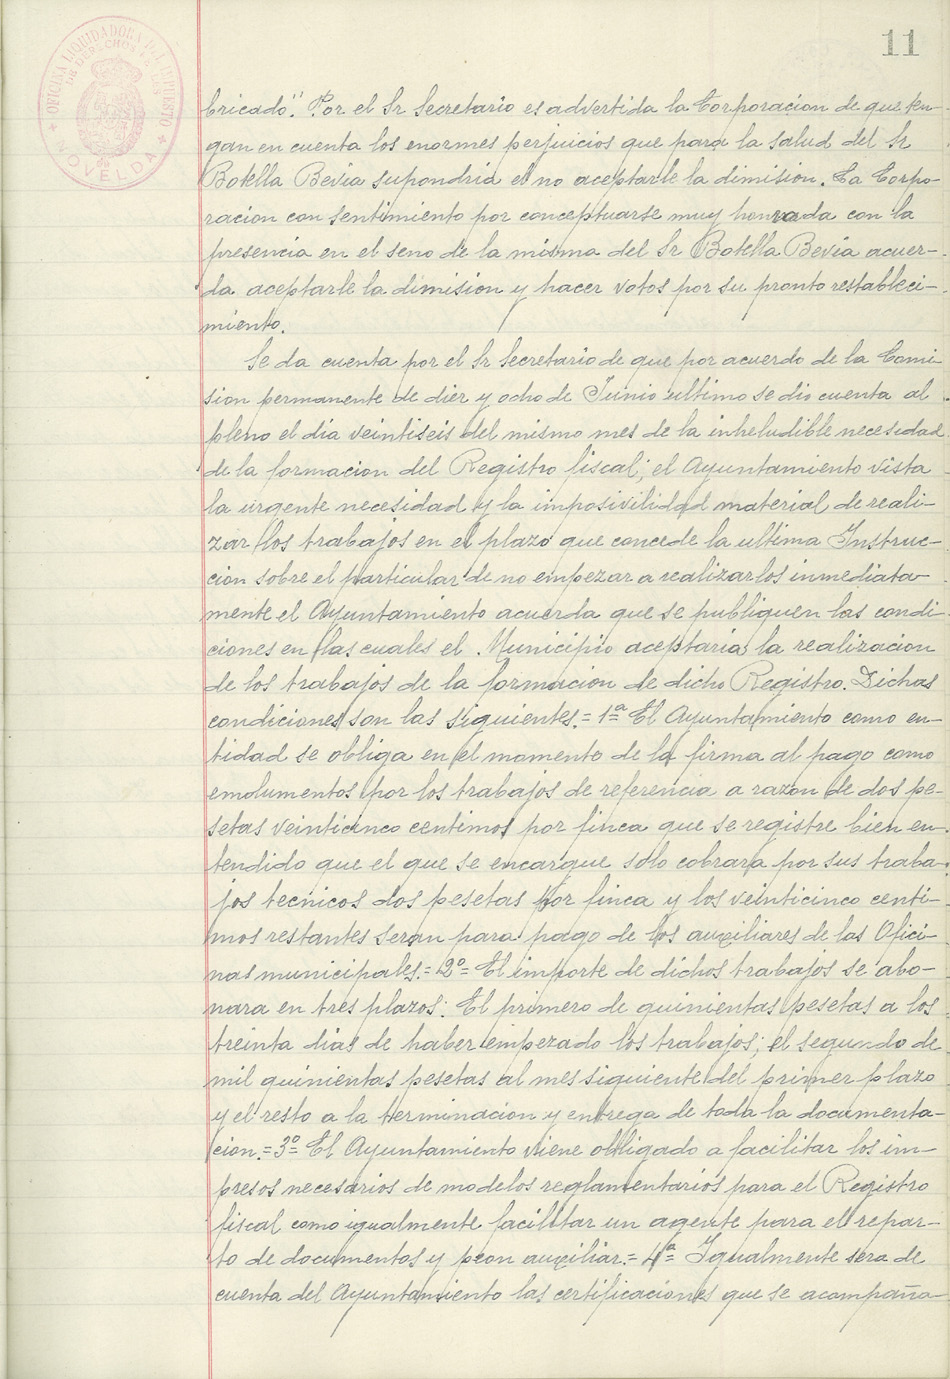 11
OFICINA LIQUIDADORA DEL IMPUESTO
DE DERECHOS
NOVELDA
bricado". Por el Sr Secretario es advertida la Corporacion de que ten-
gan en cuenta los enormes perjuicios que para la salud del Sr
Botella Bevia supondria el no aceptarle la dimision. La Corpo-
racion con sentimiento por conceptuarse muy honrada con la
presencia en el seno de la misma del Sr Botella Bevia acuer-
da aceptarle la dimision y hacer votos por su pronto restableci-
miento.
Se da cuenta por el Sr Secretario de que por acuerdo de la Comi
sion permanente de diez y ocho de Junio ultimo se dio cuenta al
pleno el dia veintiseis del mismo mes de la inheludible necesidad
de la formacion del Registro fiscal; el Ayuntamiento vista
la urgente necesidad y la imposivilidad material de reali-
zar los trabajos en el plazo que concede la ultima Instruc-
cion sobre el particular de no empezar a realizarlos inmediata-
mente el Ayuntamiento acuerda que se publiquen las condi-
ciones en las cuales el Municipio aceptaria la realizacion
de los trabajos de la formacion de dicho Registro. Dichas
condiciones son las siguientes.= 1ª El Ayuntamiento como en-
tidad se obliga en el momento de la firma al pago como
emolumentos por los trabajos de referencia a razon de dos pe-
setas veinticinco centimos por finca que se registre bien en-
tendido que el que se encargue solo cobrara por sus traba-
jos tecnicos dos pesetas por finca y los veinticinco centi-
mos restantes seran para pago de los auxiliares de las Ofici-
nas municipales.= 2º= El importe de dichos trabajos se abo-
nara en tres plazos: El primero de quinientas pesetas a los
treinta dias de haber empezado los trabajos; el segundo de
mil quinientas pesetas al mes siguiente del primer plazo
y el resto a la terminacion y entrega de toda la documenta-
cion.= 3º= El Ayuntamiento viene obligado a facilitar los im-
presos necesarios de modelos reglamentarios para el Registro
fiscal como igualmente facilitar un agente para el repar-
to de documentos y peon auxiliar.= 4ª= Igualmente sera de
cuenta del Ayuntamiento las certificaciones que se acompaña-